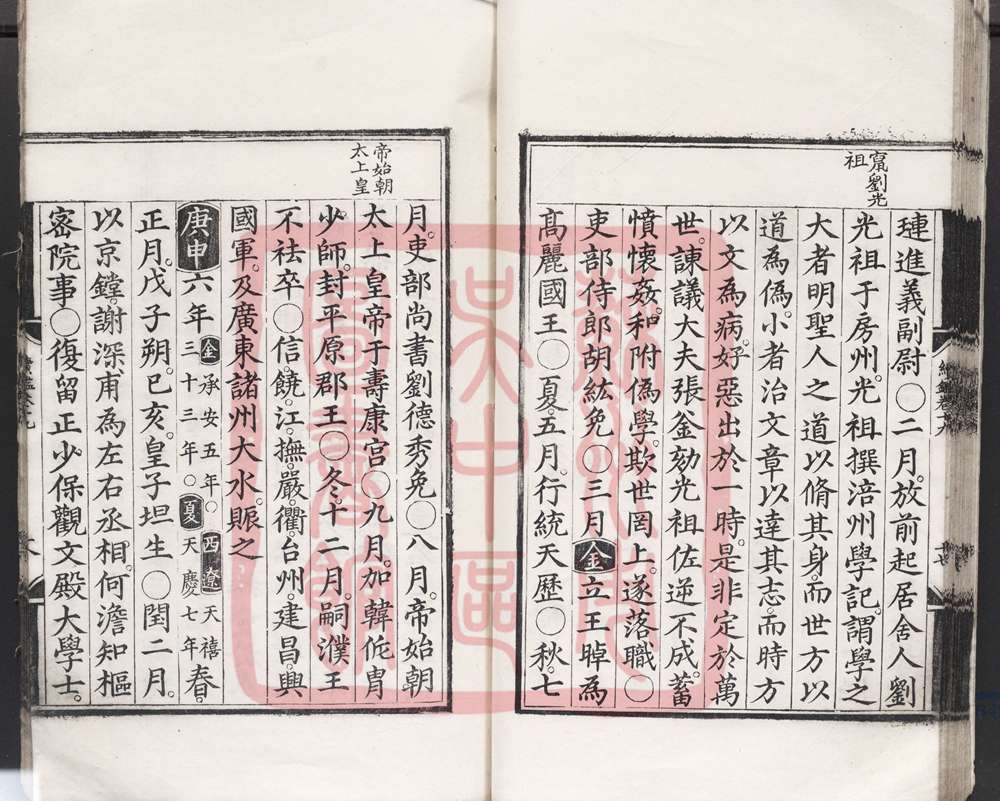 竄劉光
祖
璉進義副尉〇二月。放前起居舍人劉
光祖于房州。光祖撰涪州學記。謂學之
大者明聖人之道以脩其身。而世方以
道為偽。小者治文章以達其志。而時方
以文為病。好惡出於一時。是非定於萬
世。諫議大夫張釜劾光祖佐逆不成。蓄
憤懷姦。和附偽學。欺世罔上。遂落職〇
吏部侍郎胡紘免〇三月金立王晫為
高麗國王〇夏。五月。行統天歷〇秋。七
帝始朝
太上皇
月。吏部尚書劉德秀免〇八月。帝始朝
太上皇帝于壽康宮〇九月。加韓侂冑
少師。封平原郡王〇冬。十二月。嗣濮王
不祛卒〇信。饒。江。撫。嚴。衢。台州。建昌。興
國軍。及廣東諸州大水。賑之
庚申六年金承安五年〇西遼天禧
三十三年〇夏天慶七年春。
正月。戊子朔。己亥。皇子坦生〇閏二月。
以京鏜。謝深甫為左右丞相。何澹知樞
密院事〇復留正少保觀文殿大學士。